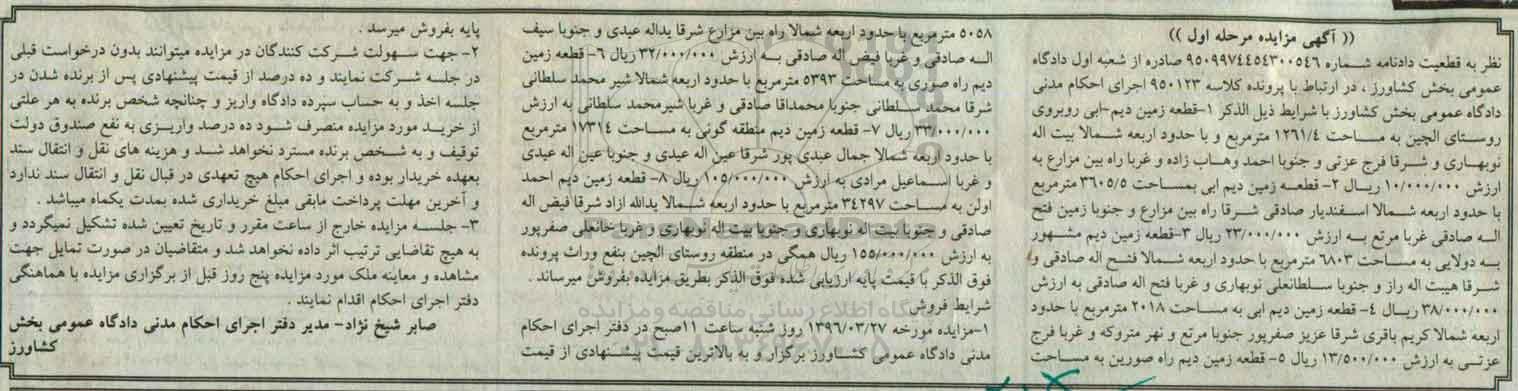 (( آگهی مزایده مرحله اول ))
نظر به قطعیت دادنامه شماره ۹۵۰۹۹۷۴۴۵۴۳۰۰۵۴۶ صادره از شعبه اول دادگاه
عمومی بخش کشاورز ، در ارتباط با پرونده کلاسه ۹۵۰۱۲۳ اجرای احکام مدنی
دادگاه عمومی بخش کشاورز با شرایط ذیل الذکر ۱-قطعه زمین دیم-ابی روبروی
روستای الچین به مساحت ۱۲۶۱/۴ مترمربع و با حدود اربعه شمالا بیت اله
نوبهاری و شرقا فرج عزتی و جنوبا احمد وهاب زاده و غربا راه بین مزارع به
ارزش ۱۰/۰۰۰/۰۰۰ ریال ۲- قطعه زمین دیم ابی بمساحت ۳۶۰۵/۵ مترمربع
با حدود اربعه شمالا اسفندیار صادقی شرقا راه بین مزارع و جنوبا زمین فتح
اله صادقی غربا مرتع به ارزش ۲۳/۰۰۰/۰۰۰ ریال ۳-قطعه زمین دیم مشهور
به دولایی به مساحت ۶۸۰۳ مترمربع با حدود اربعه شمالا فتح اله صادقی و
شرقا هیبت اله راز و جنوبا سلطانعلی نوبهاری و غربا فتح اله صادقی به ارزش
۳۸/۰۰۰/۰۰۰ ریال ۴- قطعه زمین دیم ابی به مساحت ۲۰۱۸ مترمربع با حدود
اربعه شمالا کریم باقری شرقا عزیز صفرپور جنوبا مرتع و نهر متروکه و غربا فرج
عزتی به ارزش ۱۳/۵۰۰/۰۰۰ ریال ۵- قطعه زمین دیم راه صورین به مساحت
۵۰۵۸ مترمربع با حدود اربعه شمالا راه بین مزارع شرقا یداله عبدی و جنوبا سیف
اله صادقی و غربا فیض اله صادقی به ارزش ۳۲/۰۰۰/۰۰۰ ریال ۶- قطعه زمین
دیم راه صوری به مساحت ۵۳۹۳ مترمربع با حدود اربعه شمالا شیر محمد سلطانی
شرقا محمد سلطانی جنوبا محمداقا صادقی و غربا شیرمحمد سلطانی به ارزش
۳۳/۰۰۰/۰۰۰ ریال ۷- قطعه زمین دیم منطقه گونی به مساحت ۱۷۳۱۴ مترمربع
با حدود اربعه شمالا جمال عبدی پور شرقا عین اله عبدی و جنوبا عین اله عبدی
و غربا اسماعیل مرادی به ارزش ۱۰۵/۰۰۰/۰۰۰ ریال ۸- قطعه زمین دیم احمد
اولن به مساحت ۳۴۲۹۷ مترمربع با حدود اربعه شمالا یدالله ازاد شرقا فیض اله
صادقی و جنوبا بیت اله نوبهاری و جنوبا بیت اله نوبهاری و غربا خانعلی صفرپور
به ارزش ۱۵۵/۰۰۰/۰۰۰ ریال همگی در منطقه روستای الچین بنفع وراث پرونده
فوق الذکر با قیمت پایه ارزیابی شده فوق الذکر بطریق مزایده بفروش میرساند .
شرایط فروش
۱-مزایده مورخه ۱۳۹۶/۰۳/۲۷ روز شنبه ساعت ۱۱صبح در دفتر اجرای احکام
مدنی دادگاه عمومی کشاورز برگزار و به بالاترین قیمت پیشنهادی از قیمت
پایه بفروش میرسد .
۲- جهت سهولت شرکت کنندگان در مزایده میتوانند بدون درخواست قبلی
در جلسه شرکت نمایند و ده درصد از قیمت پیشنهادی پس از برنده شدن در
جلسه اخذ و به حساب سپرده دادگاه واریز و چنانچه شخص برنده به هر علتی
از خرید مورد مزایده منصرف شود ده درصد واریزی به نفع صندوق دولت
توقیف و به شخص برنده مسترد نخواهد شد و هزینه های نقل و انتقال سند
بعهده خریدار بوده و اجرای احکام هیچ تعهدی در قبال نقل و انتقال سند ندارد
و آخرین مهلت پرداخت مابقی مبلغ خریداری شده بمدت یکماه میباشد .
۳- جلسه مزایده خارج از ساعت مقرر و تاریخ تعیین شده تشکیل نمیگردد و
به هیچ تقاضایی ترتیب اثر داده نخواهد شد و متقاضیان در صورت تمایل جهت
مشاهده و معاینه ملک مورد مزایده پنج روز قبل از برگزاری مزایده با هماهنگی
دفتر اجرای احکام اقدام نمایند .
صابر شیخ نژاد- مدیر دفتر اجرای احکام مدنی دادگاه عمومی بخش
کشاورز